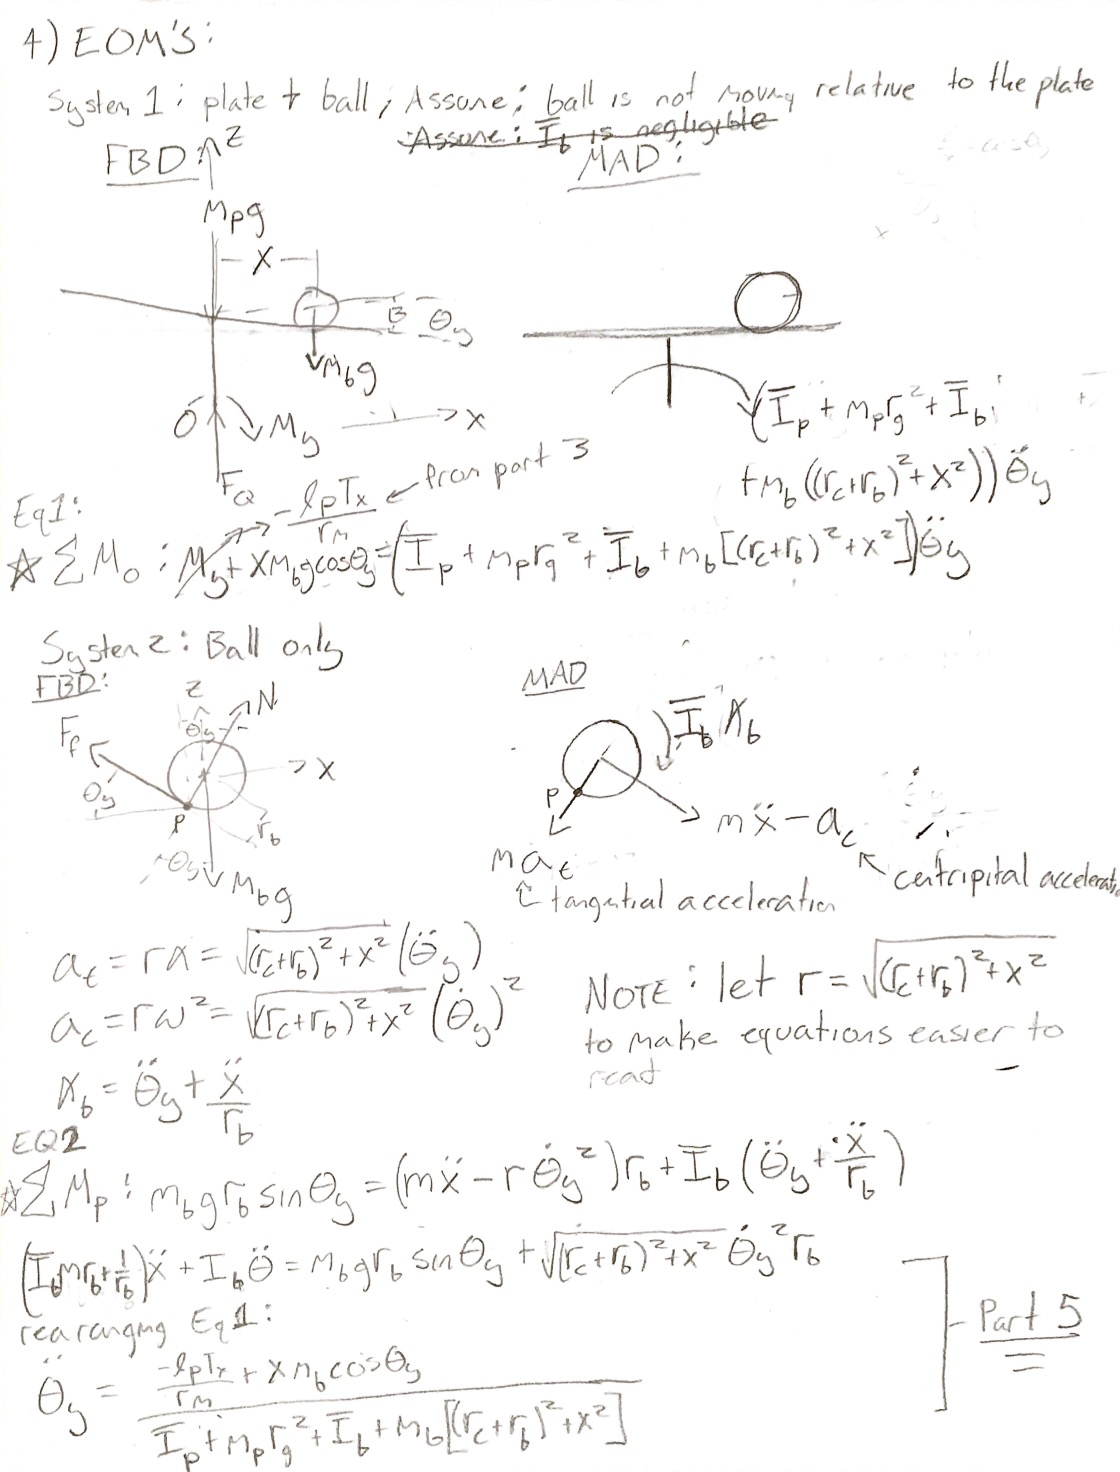 4) EOM'S:
System 1: plate + ball, Assume: ball is not moving relative to the plate
Assume: I̅_b is negligible
FBD: Z
MAD:
M_p g
X
B θ_y
M_b g
O M_y → X
F_Q
(I̅_p + m_p r_g² + I̅_b
+ m_b((r_c+r_b)² + X²))θ̈_y
Eq1: -l_p T_x / r_m ← from part 3
☆ ΣM_o : M_y + X m_b g cosθ_y = (I̅_p + m_p r_g² + I̅_b + m_b[(r_c+r_b)² + x²])θ̈_y
System 2: Ball only
FBD:
MAD
Z N
F_f θ_y
X
θ_y
P r_b
θ_y M_b g
I̅_b α_b
P
mẍ - a_c
centripital
m a_t
tangential acceleration
a_t = rα = √((r_c+r_b)² + x²) (θ̈_y)
a_c = rω² = √((r_c+r_b)² + x²) (θ̇_y)²
NOTE: let r = √((r_c+r_b)² + x²)
to make equations easier to
read
α_b = θ̈_y + ẍ/r_b
EQ2
☆ ΣM_p : m_b g r_b sinθ_y = (mẍ - rθ̇_y²)r_b + I̅_b(θ̈_y + ẍ/r_b)
(I_b m r_b + 1/r_b)ẍ + I_b θ̈ = m_b g r_b sinθ_y + √((r_c+r_b)² + x²) θ̇_y² r_b
rearanging Eq1:
Part 5
θ̈_y = (-l_p T_x / r_m + x m_b cosθ_y) / (I̅_p + m_p r_g² + I̅_b + m_b[(r_c+r_b)² + x²])